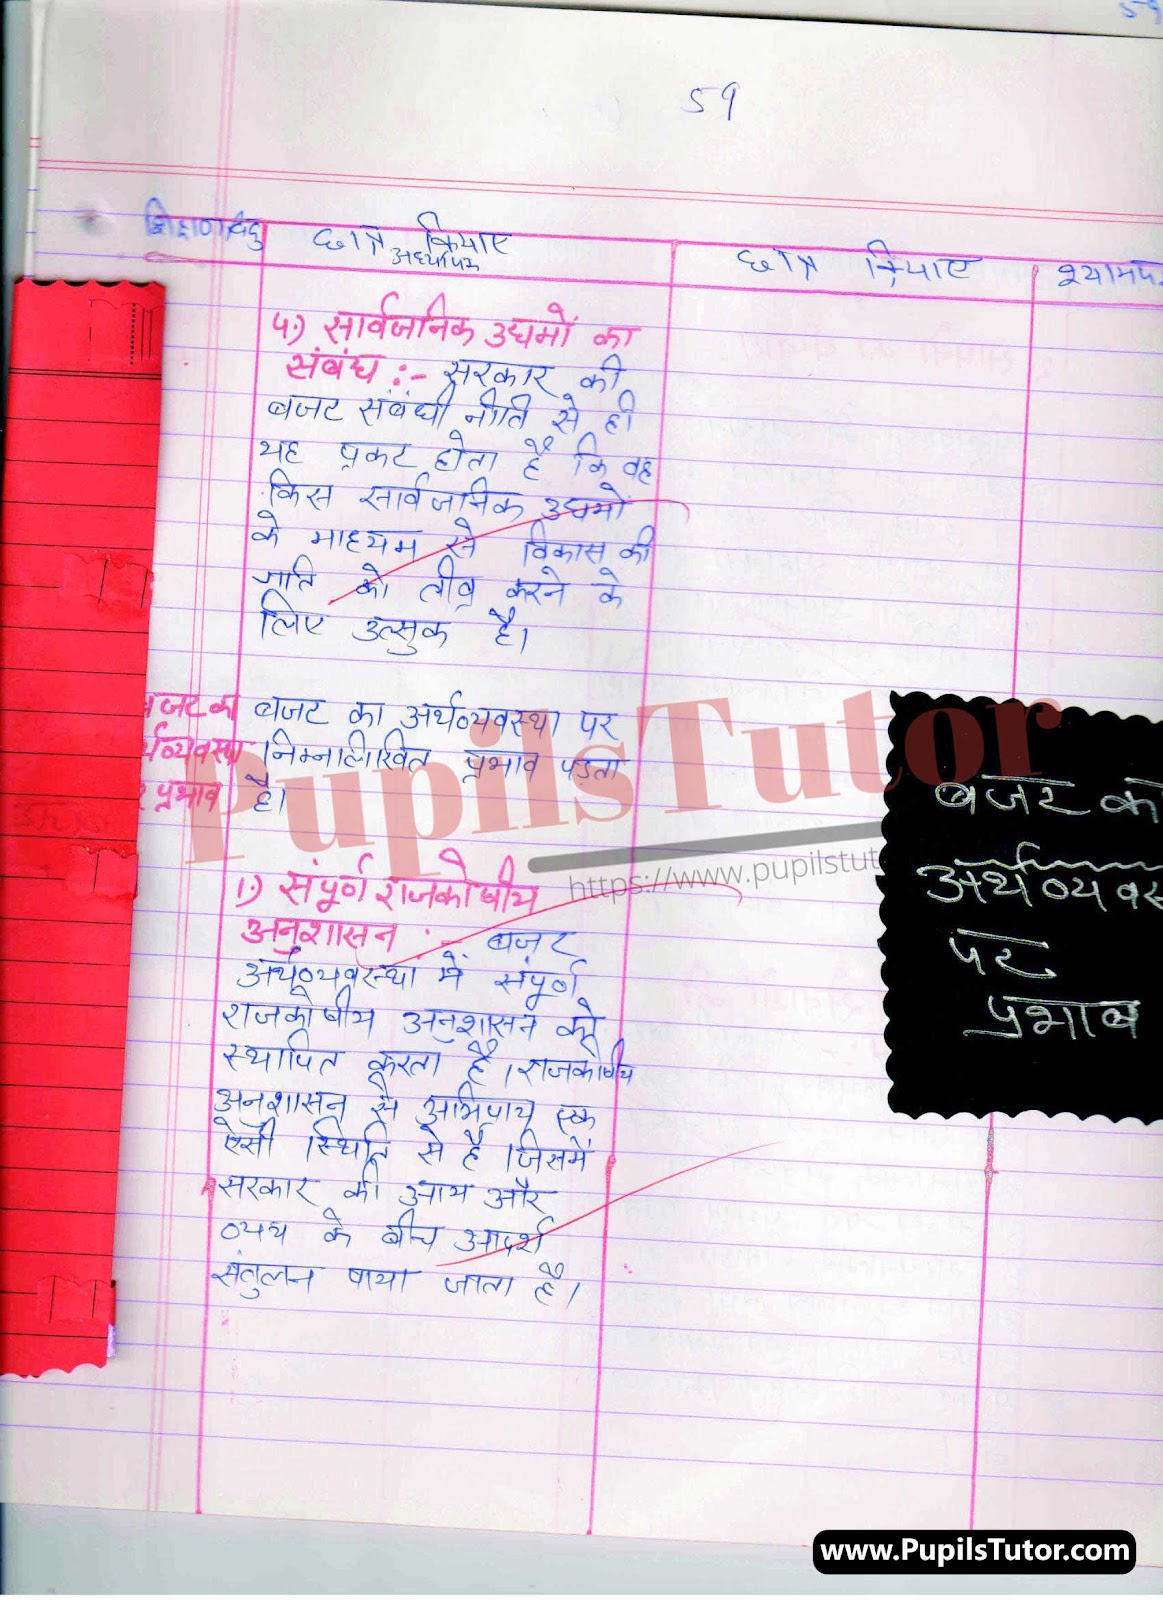 59
59
शिक्षण बिंदु छात्र क्रियाए छात्र क्रियाए श्यामप
अध्यापक
५) सार्वजनिक उद्यमों का
संबंध :- सरकार की
बजट संबंधी नीति से ही
यह प्रकट होता है कि वह
किस सार्वजनिक उद्यमों
के माध्यम से विकास की
गति को तीव्र करने के
लिए उत्सुक है।
बजट का बजट का अर्थव्यवस्था पर
र्थव्यवस्था निम्नलिखित प्रभाव पडता
र प्रभाव है।
PupilsTutor
https://www.pupilstut
बजट का
अर्थव्यवस
पर
प्रभाव
1) संपूर्ण राजकोषीय
अनुशासन :- बजट
अर्थव्यवस्था में संपूर्ण
राजकोषीय अनुशासन को
स्थापित करता है। राजकोषीय
अनुशासन से अभिप्राय एक
ऐसी स्थिति से है जिसमें
सरकार की आय और
व्यय के बीच आदर्श
संतुलन पाया जाता है।
www.PupilsTutor.com